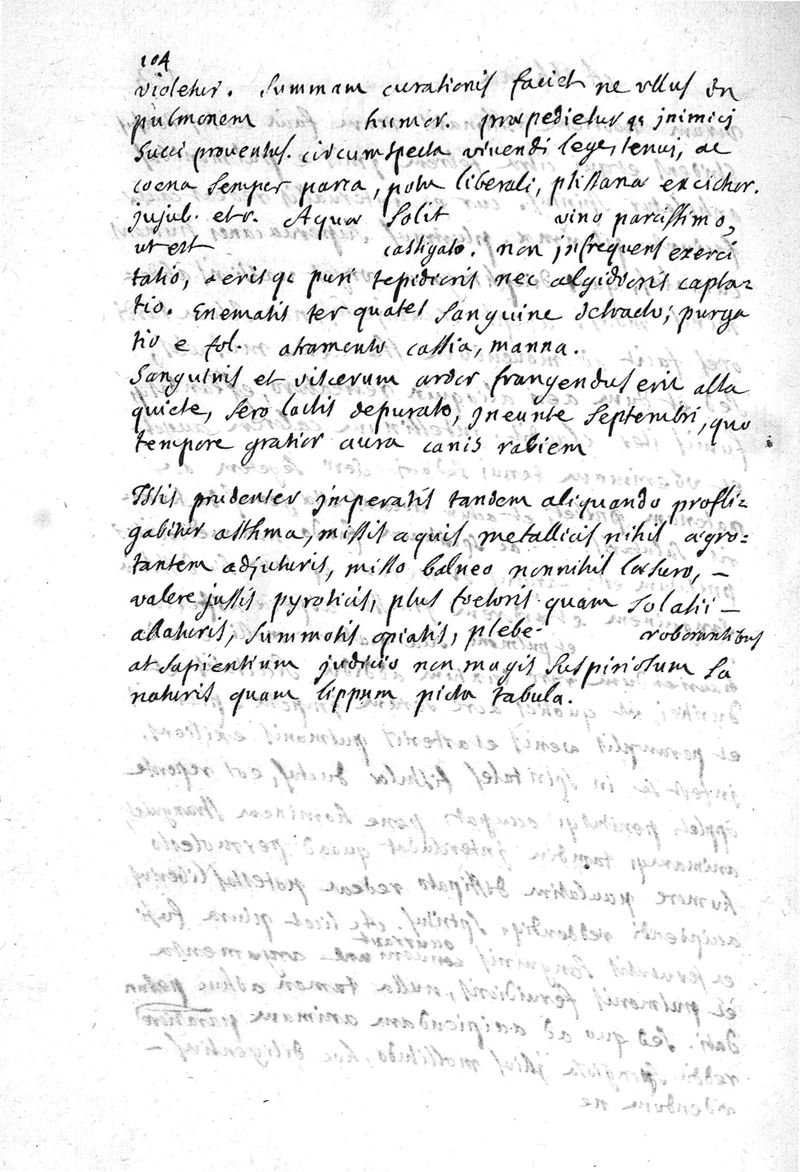 104
violetur. Summam curationis faciet ne ullus in
pulmonem humor. præpedietur qs jnimici
Succi proventus. circumspecta vivendi lege, tenui, ac
coena semper parca, potu liberali, ptissana ex cichor.
jujub. etc. Aqua Solit vino parcissimo,
ut est castigato. non jnfrequens exerci
tatio, aerisqs puri tepidioris nec algidioris capta=
tio. Enematis ter quater sanguine detracto; purga
tio e fol. atramento cassia, manna.
Sanguinis et viscerum ardor frangendus erit alta
quiete, sero lactis depurato, jneunte Septembri, quo
tempore gratior aura canis rabiem
Istis prudenter jmperatis tandem aliquando profli=
gabitur asthma, missis aquis metallicis nihil ægro=
tantem adjuturis, misso balneo nonnihil læsuro, –
valere jussis pyroticis, plus foetoris quam solatii –
allaturis, summotis opiatis, plebe- croborantibus
at sapientium judicio non magis suspiriosum sa
naturis quam lippum picta tabula.